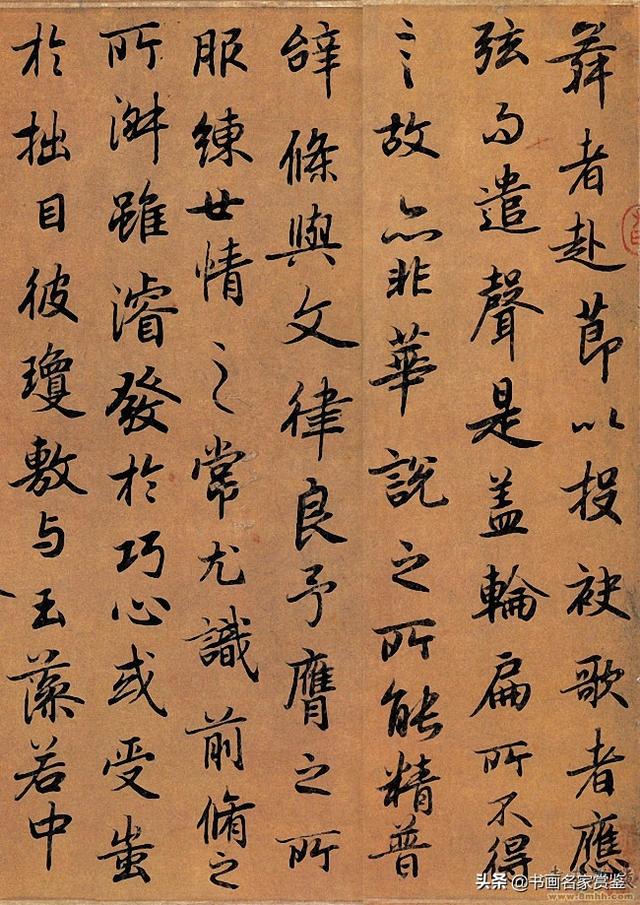 舞者赴莭以投袂歌者應
弦而遣聲是盖輪扁所不得
言故亦非華說之所能精普
辭條與文律良予膺之所
服練世情之常尤識前脩之
所淋雖濬發於巧心或受蚩
於拙目彼瓊敷与玉藻若中
头条@书画名家赏鉴
www.8mhh.com